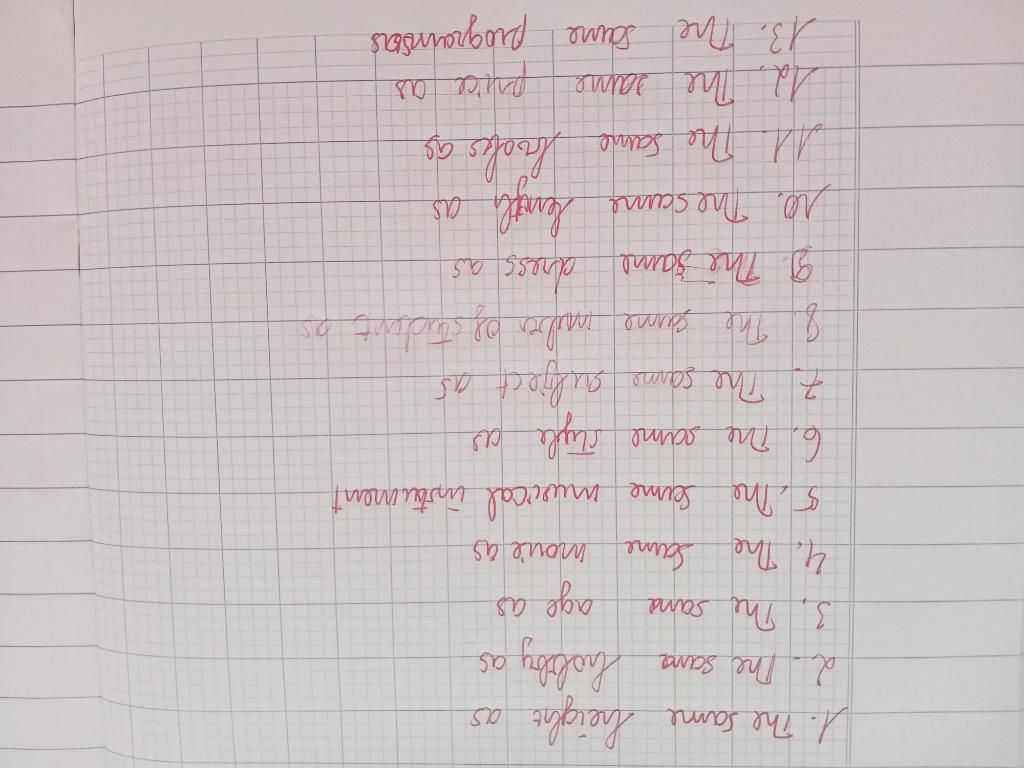 1. The same height as
2. The same hobby as
3. The same age as
4. The same movie as
5. The same musical instrument
6. The same style as
7. The same subject as
8. The same of student as
9. The same dress as
10. The same length as
11. The same as
12. The same price as
13. The same program as